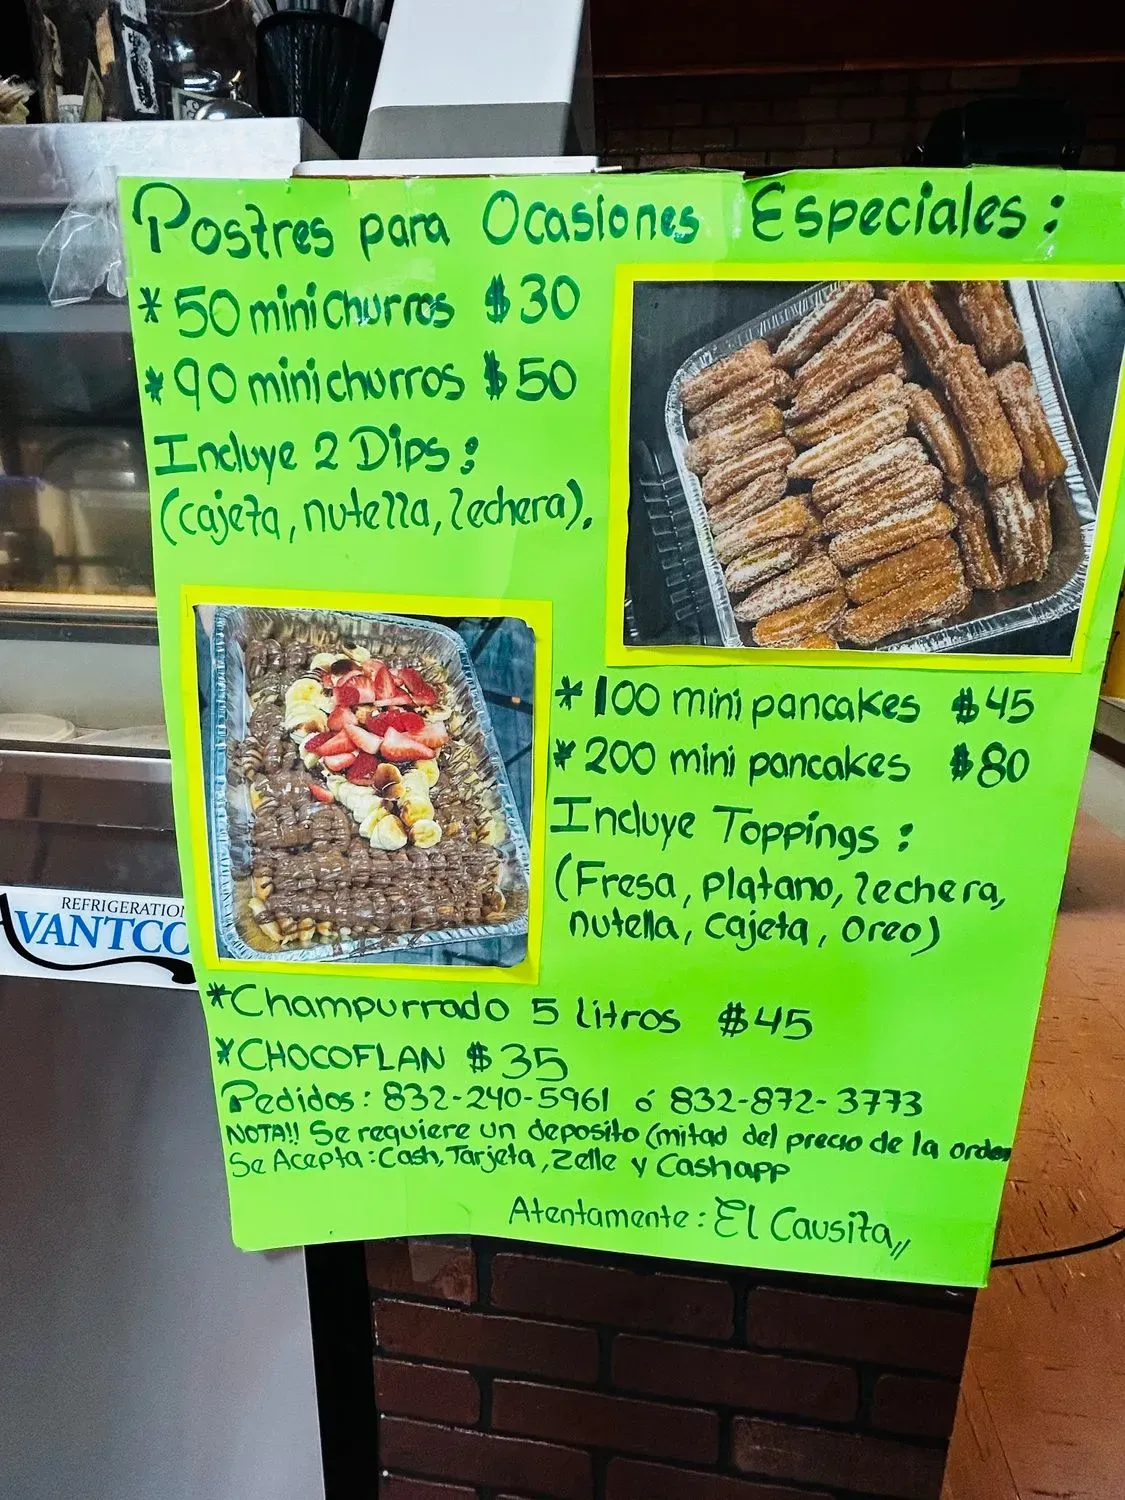 Postres para Ocasiones Especiales:
* 50 mini churros $30
* 90 mini churros $50
Incluye 2 Dips:
(cajeta, nutella, lechera).
* 100 mini pancakes $45
* 200 mini pancakes $80
Incluye Toppings:
(Fresa, platano, lechera,
nutella, cajeta, oreo)
REFRIGERATION
AVANTCO
*Champurrado 5 litros $45
*CHOCOFLAN $35
Pedidos: 832-240-5961 ó 832-872-3773
NOTA!! Se requiere un deposito (mitad del precio de la orden
Se Acepta: Cash, Tarjeta, Zelle y Cashapp
Atentamente: El Causita,,